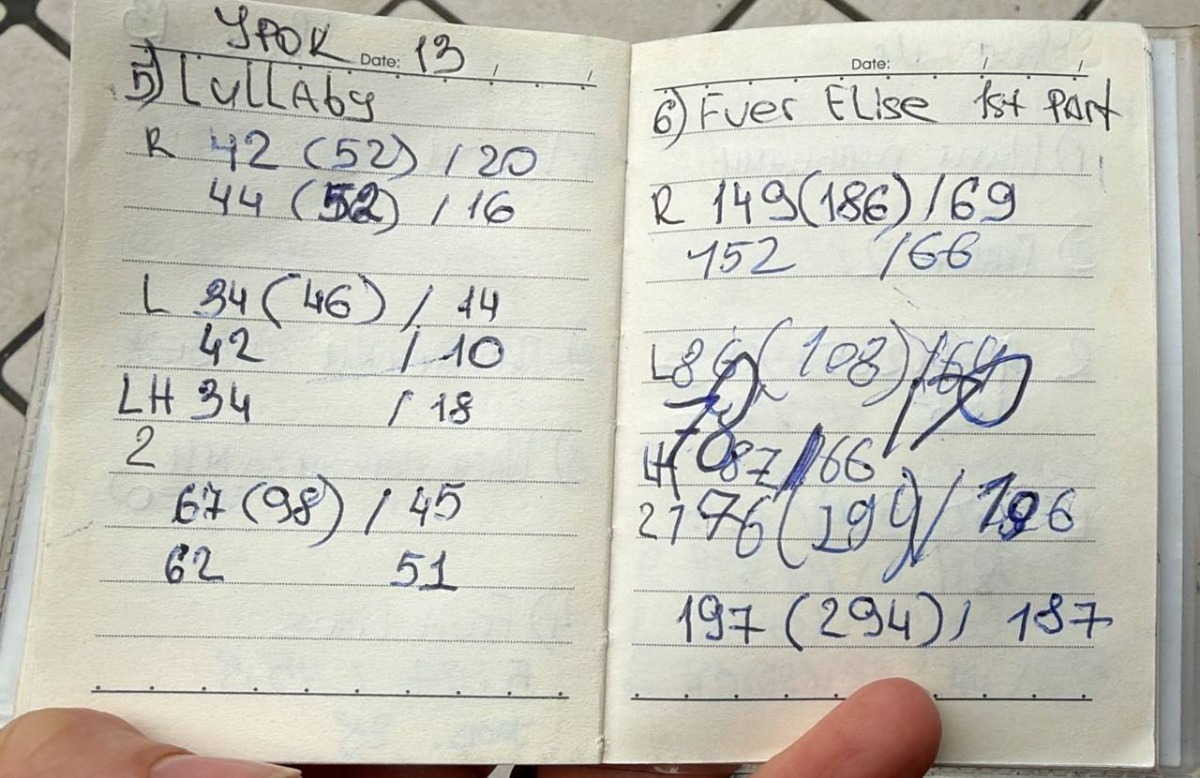 УРОК Date: 13
5) LyLLAby
R 42 (52) / 20
44 (52) / 16
L 34 (46) / 14
42 / 10
LH 34 / 18
2
67 (98) / 45
62 51
Date:
6) Fuer Elise 1st PArt
R 149(186) /69
152 /66
L 86 (108)
LH 87 /66
2 176 (294) /
197 (294) / 187